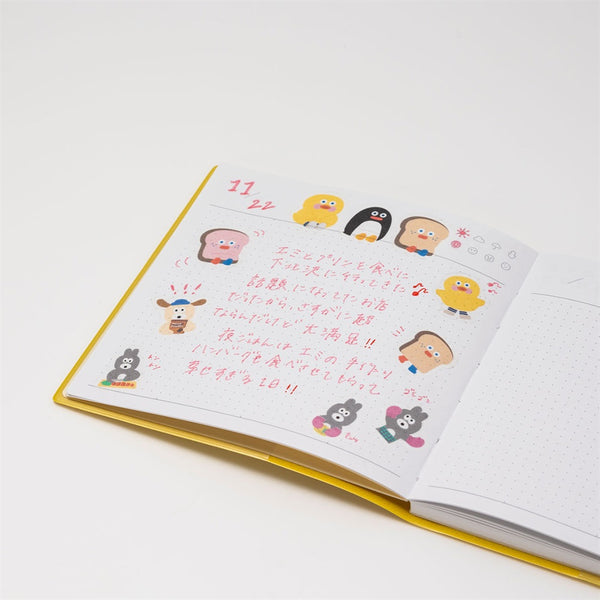 11/22
エミとプリンを食べに
下北沢に行ってきた
話題になってたお店
だったから、さすがに朝
ならんだけど大満足!!
夜ごはんは エミの 手作り
ハンバーグを食べさせてもらって
幸せすぎる1日!!